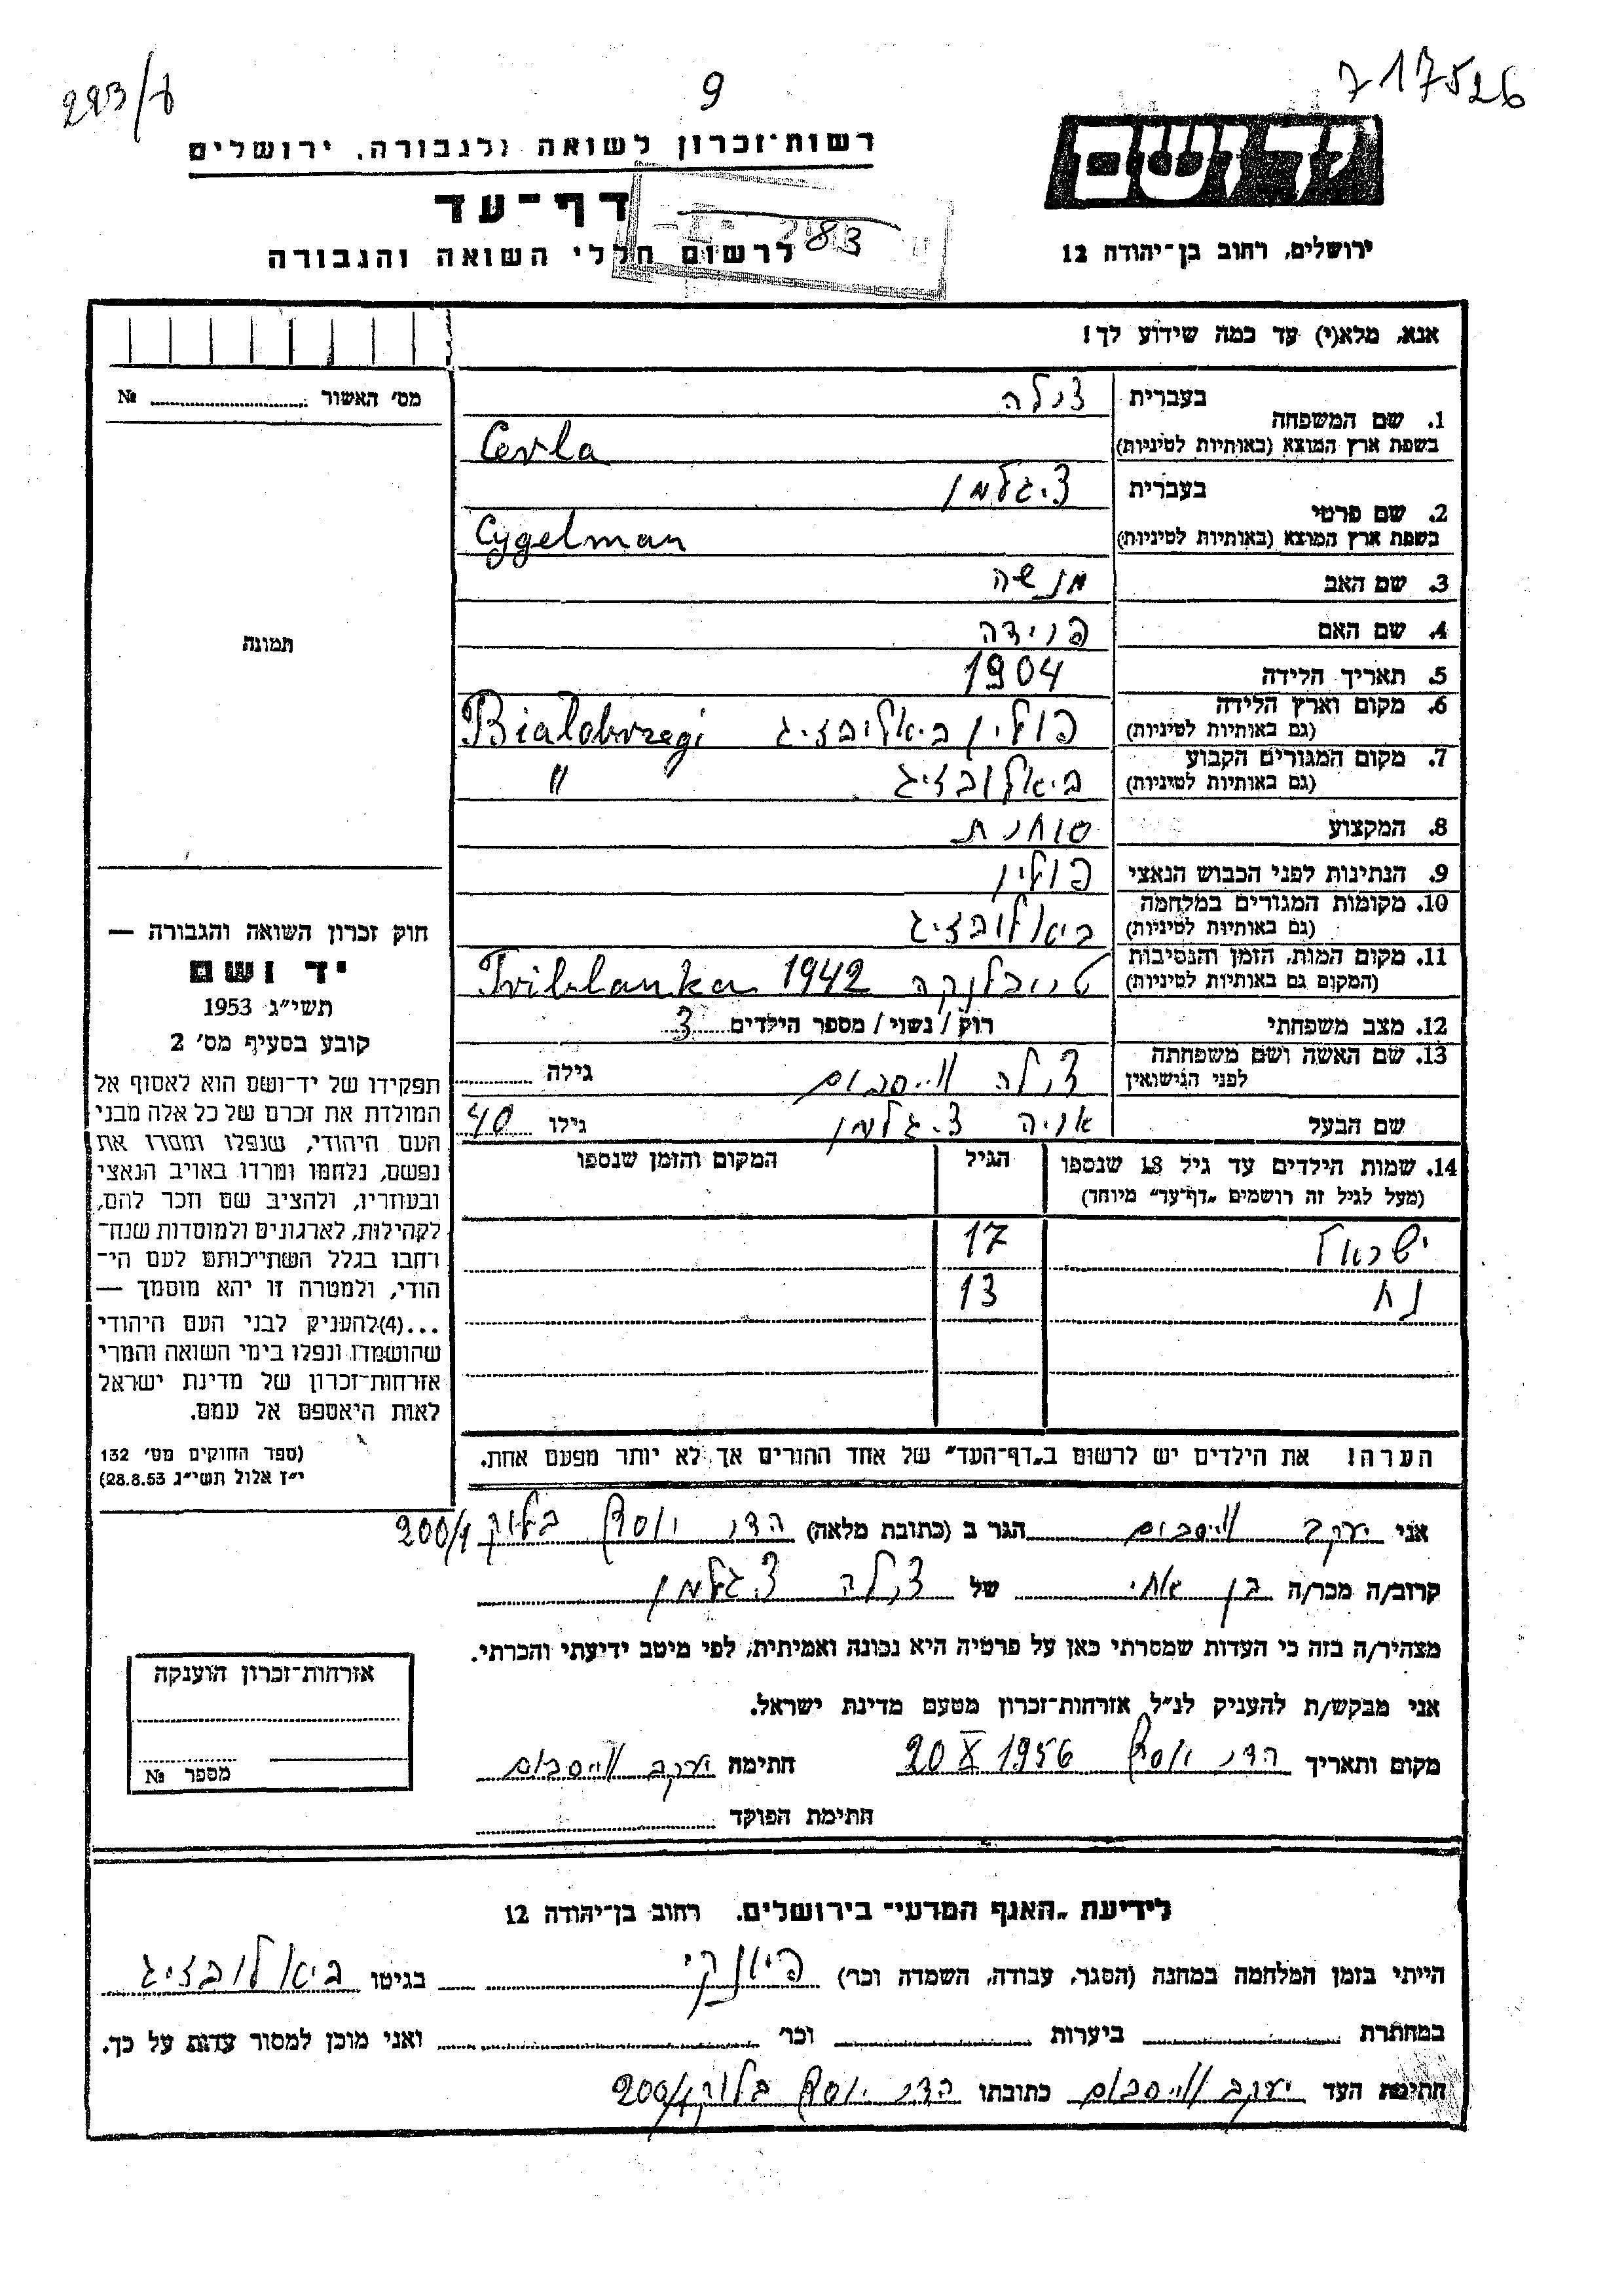 223/8
9
717526
יד ושם
רשות־זכרון לשואה ולגבורה, ירושלים
דף־עד
לרשום חללי השואה והגבורה
83
ירושלים, רחוב בן־יהודה 12
אנא, מלא(י) עד כמה שידוע לך!
מס׳ האשור № 
1. שם המשפחה
בעברית צרלה
בשפת ארץ המוצא (באותיות לטיניות) Cerla
2. שם פרטי
בעברית ציגלמן
בשפת ארץ המוצא (באותיות לטיניות) Cygelman
3. שם האב מנשה
4. שם האם פרידה
5. תאריך הלידה 1904
6. מקום וארץ הלידה
(גם באותיות לטיניות) פולין ביאלובזיג Bialobrzegi
7. מקום המגורים הקבוע
(גם באותיות לטיניות) ביאלובזיג "
8. המקצוע סוחרת
9. הנתינות לפני הכבוש הנאצי פולין
10. מקומות המגורים במלחמה
(גם באותיות לטיניות) ביאלובזיג
11. מקום המות, הזמן והנסיבות
(המקום גם באותיות לטיניות) טריבלנקה 1942 Triblanka
12. מצב משפחתי רוק / נשוי / מספר הילדים 3
13. שם האשה ושם משפחתה
לפני הנישואין צרלה ווייסבוים גילה
שם הבעל אריה ציגלמן גילו 40
14. שמות הילדים עד גיל 18 שנספו הגיל המקום והזמן שנספו
(מעל לגיל זה רושמים „דף־עד” מיוחד)
ישראל 17
נח 13
הערה! את הילדים יש לרשום ב„דף־העד” של אחד ההורים אך לא יותר מפעם אחת.
תמונה
חוק זכרון השואה והגבורה —
יד ושם
תשי״ג 1953
קובע בסעיף מס׳ 2
תפקידו של יד־ושם הוא לאסוף אל
המולדת את זכרם של כל אלה מבני
העם היהודי, שנפלו ומסרו את
נפשם, נלחמו ומרדו באויב הנאצי
ובעוזריו, ולהציב שם וזכר להם,
לקהילות, לארגונים ולמוסדות שנח־
רחבו בגלל השתייכותם לעם הי־
הודי, ולמטרה זו יהא מוסמך —
...(4)להעניק לבני העם היהודי
שהושמדו ונפלו בימי השואה והמרי
אזרחות־זכרון של מדינת ישראל
לאות היאספם אל עמם.
(ספר החוקים מס׳ 132
י״ז אלול תשי״ג 28.8.53)
אני יעקב ווייסבוים הגר ב (כתובת מלאה) הדר יוסף בלוק 200/1
קרוב/ה מכר/ה בן אחי של צרלה ציגלמן
מצהיר/ה בזה כי העדות שמסרתי כאן על פרטיה היא נכונה ואמיתית, לפי מיטב ידיעתי והכרתי.
אני מבקש/ת להעניק לנ״ל אזרחות־זכרון מטעם מדינת ישראל.
מקום ותאריך הדר יוסף 20 X 1956 חתימה יעקב ווייסבוים
חתימת הפוקד
אזרחות־זכרון הוענקה
מספר №
לידיעת „האגף המדעי״ בירושלים. רחוב בן־יהודה 12
הייתי בזמן המלחמה במחנה (הסגר, עבודה, השמדה וכר׳) פיונקי בגיטו ביאלובזיג
במחתרת ביערות וכר׳ ואני מוכן למסור עדות על כך.
חתימת העד יעקב ווייסבוים כתובתו הדר יוסף בלוק 200/1